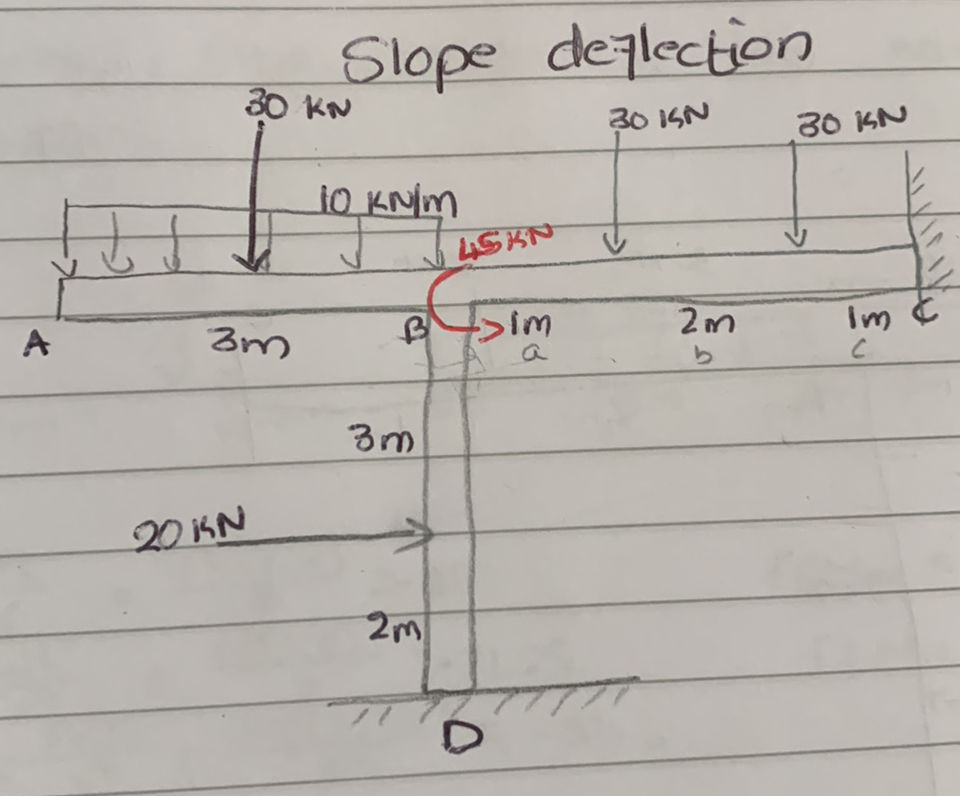 Slope deflection
30 KN
30 KN
30 KN
10 KN/m
45KN
A
3m
B
1m
2m
1m
C
a
b
c
3m
20 KN
2m
D